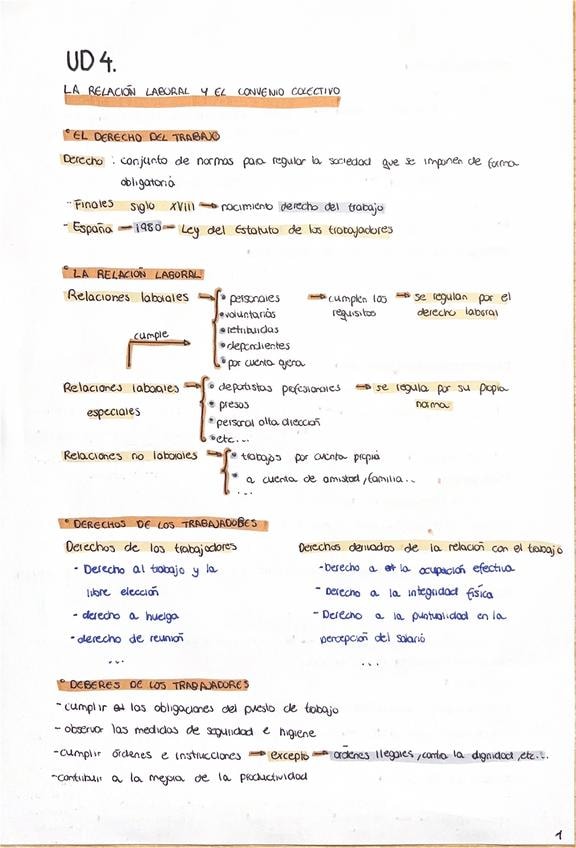 UD 4.
LA RELACIÓN LABORAL Y EL CONVENIO COLECTIVO
° EL DERECHO DEL TRABAJO
Derecho : conjunto de normas para regular la sociedad que se imponen de forma
obligatoria
- Finales siglo XVIII → nacimiento derecho del trabajo
- España — 1980 — Ley del Estatuto de los trabajadores
° LA RELACIÓN LABORAL
Relaciones laborales → • personales → cumplen los → se regulan por el
• voluntarias requisitos derecho laboral
• retribuidas
cumple → • dependientes
• por cuenta ajena
Relaciones laborales → • deportistas profesionales → se regula por su propia
especiales • presos norma
• personal alta dirección
• etc...
Relaciones no laborales → • trabajos por cuenta propia
• a cuenta de amistad, familia...
...
° DERECHOS DE LOS TRABAJADORES
Derechos de los trabajadores Derechos derivados de la relación con el trabajo
- Derecho al trabajo y la - Derecho a la ocupación efectiva
libre elección - Derecho a la integridad física
- derecho a huelga - Derecho a la puntualidad en la
- derecho de reunión percepción del salario
... ...
° DEBERES DE LOS TRABAJADORES
- cumplir las obligaciones del puesto de trabajo
- observar las medidas de seguridad e higiene
- cumplir órdenes e instrucciones → excepto → órdenes ilegales, contra la dignidad, etc...
- contribuir a la mejora de la productividad
1